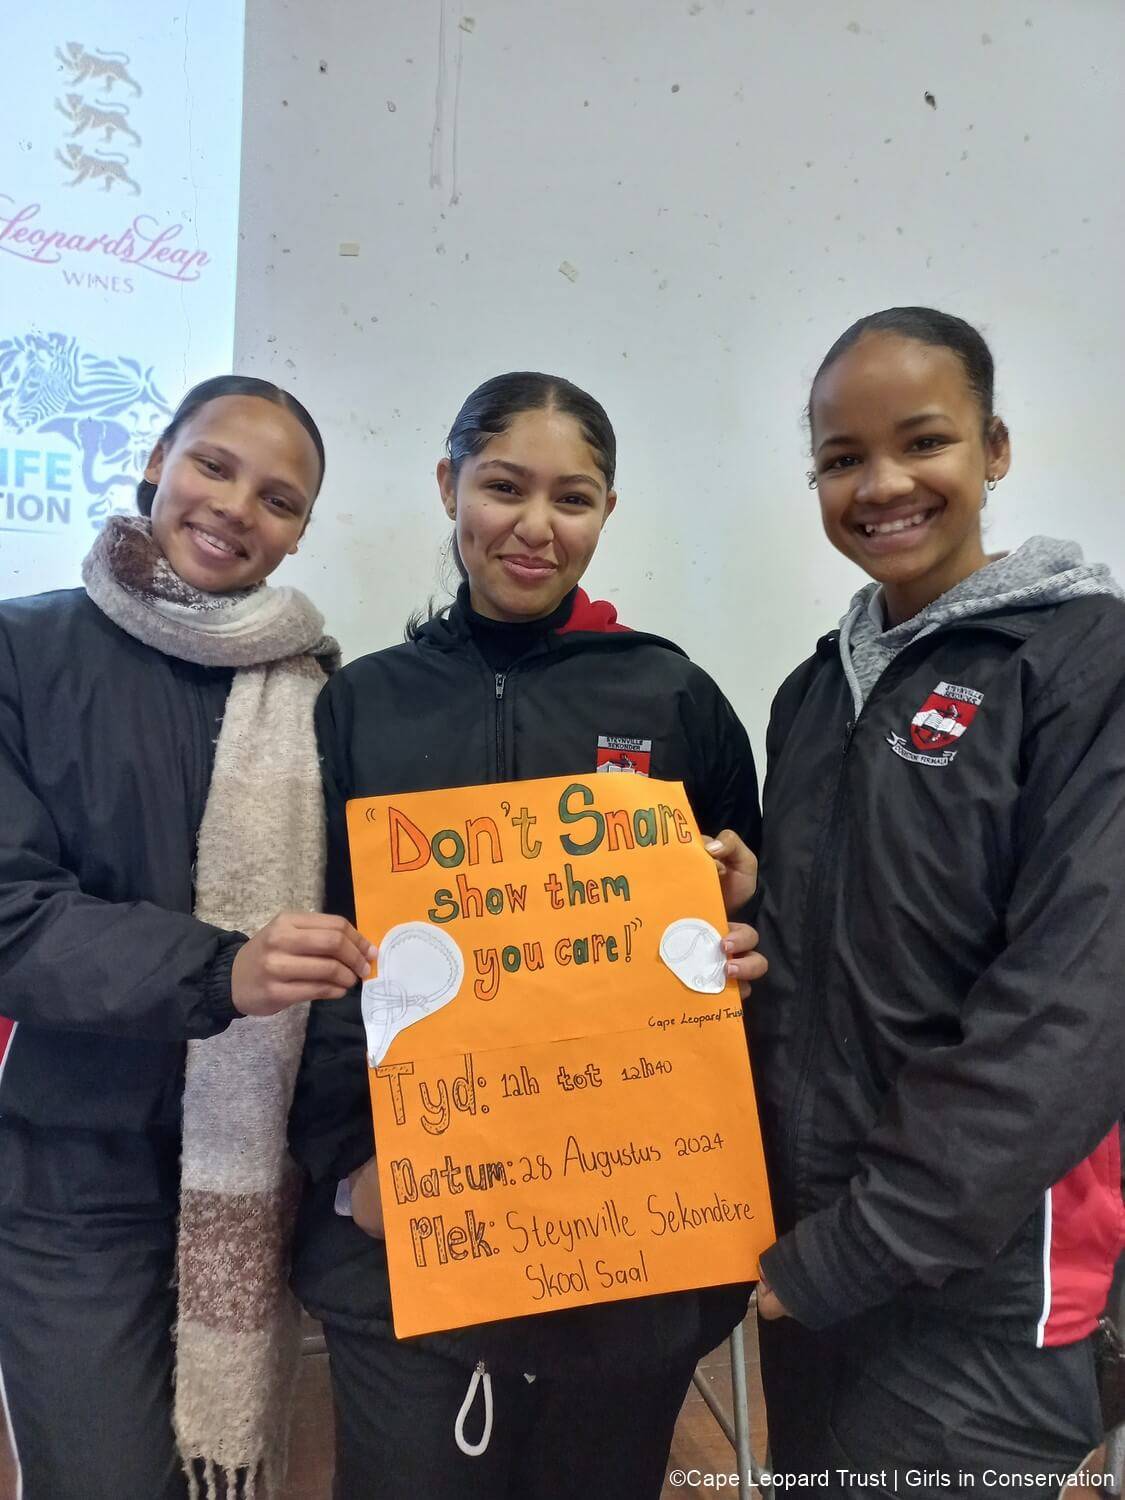 Leopard's Leap
WINES
IFE
TION
STEYNVILLE
SEKONDER
STEYNVILLE
SEKONDER
"Don't Snare
show them
you care!"
Cape Leopard Trust
Tyd: 12h tot 12h40
Datum: 28 Augustus 2024
Plek: Steynville Sekondêre
Skool Saal
©Cape Leopard Trust | Girls in Conservation